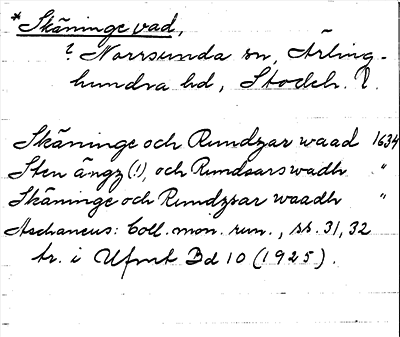 *Skäninge vad,
? Norrsunda sn, Ärling-
hundra hd, Stockh. l.
Skäninge och Rundzar waad 1634
Sten ängz (!), och Rundsars wadh "
Skäninge och Rundzsar waadh "
Aschaneus: Coll. mon. run., ss. 31, 32
tr. i Ufmt Bd 10 (1925).